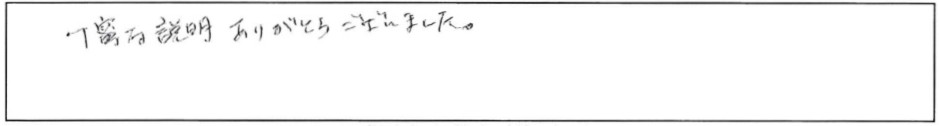 丁寧な説明ありがとうございました。